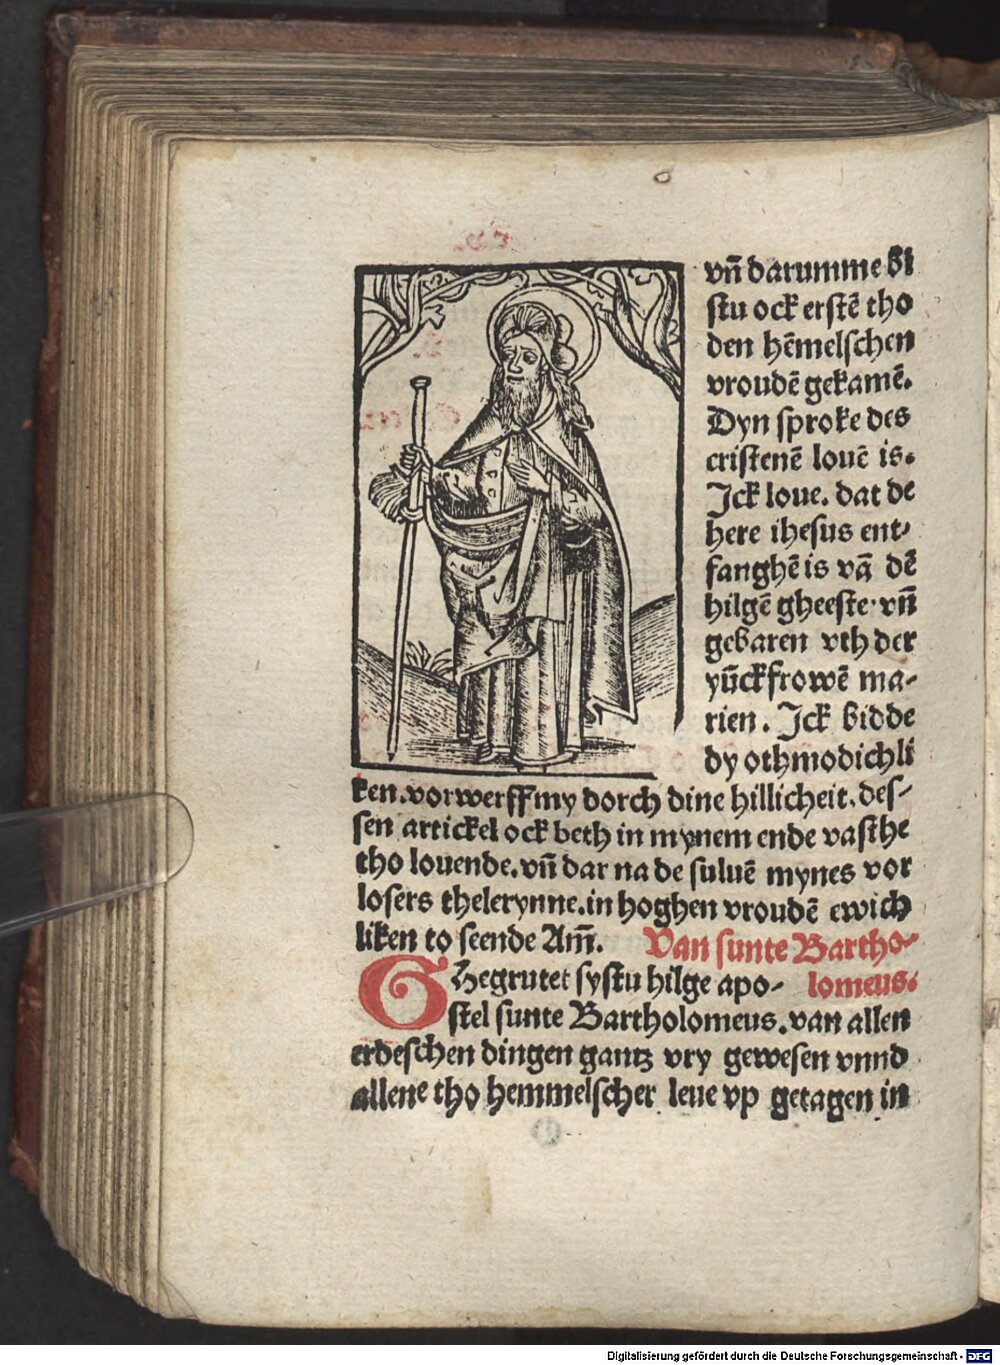 vn̄ darumme bi
stu ock erstē tho
den hēmelschen
vroudē gekamē.
Dyn sproke des
cristenē louē is.
Jck loue. dat de
here ihesus ent-
fanghē is vā dē
hilgē gheeste. vn̄
gebaren vth der
yūckfrowē ma-
rien. Jck bidde
dy othmodichli
ken. vorwerff my dorch dine hillicheit. des-
sen artickel ock beth in mynem ende vasthe
tho louende. vn̄ dar na de suluē mynes vor
losers thelerynne. in hoghen vroudē ewich
liken to seende Am̄. Van sunte Bartho-
GHegrutet systu hilge apo- lomeus.
stel sunte Bartholomeus. van allen
erdeschen dingen gantz vry gewesen vnnd
allene tho hemmelscher leue vp getagen in
Digitalisierung gefördert durch die Deutsche Forschungsgemeinschaft - DFG